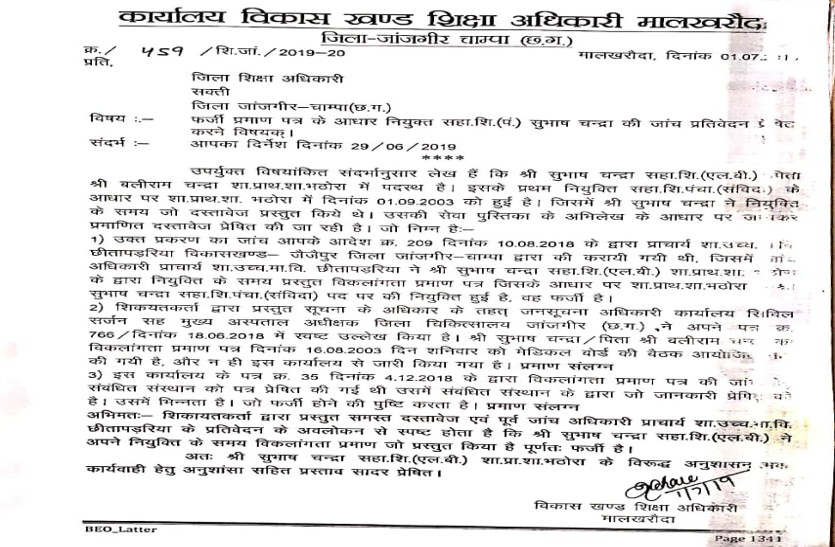 कार्यालय विकास खण्ड शिक्षा अधिकारी मालखरौदा
जिला-जांजगीर चाम्पा (छ.ग.)
क्र./ 459 /शि.जां./2019-20 मालखरौदा, दिनांक 01.07
प्रति,
जिला शिक्षा अधिकारी
सक्ती
जिला जांजगीर-चाम्पा(छ.ग.)
विषय :- फर्जी प्रमाण पत्र के आधार नियुक्त सहा.शि.(पं.) सुभाष चन्द्रा की जांच प्रतिवेदन
करने विषयक्।
संदर्भ :- आपका दिर्नेश दिनांक 29/06/2019
****
उपर्युक्त विषयांकित संदर्भानुसार लेख हैं कि श्री सुभाष चन्द्रा सहा.शि.(एल.बी.)
श्री बलीराम चन्द्रा शा.प्राथ.शा.भठोरा में पदस्थ है। इसके प्रथम नियुक्ति सहा.शि.पंचा.(संविदा) के
आधार पर शा.प्राथ.शा. भठोरा में दिनांक 01.09.2003 को हुई है। जिसमें श्री सुभाष चन्द्रा ने नियुक्ति
के समय जो दस्तावेज प्रस्तुत किये थे। उसकी सेवा पुस्तिका के अभिलेख के आधार पर
प्रमाणित दस्तावेज प्रेषित की जा रही है। जो निम्न है:-
1) उक्त प्रकरण का जांच आपके आदेश क्र. 209 दिनांक 10.08.2018 के द्वारा प्राचार्य शा.उच्च.
छीतापड़रिया विकासखण्ड- जैजैपुर जिला जांजगीर-चाम्पा द्वारा की करायी गयी थी, जिसमें
अधिकारी प्राचार्य शा.उच्च.मा.वि. छीतापड़रिया ने श्री सुभाष चन्द्रा सहा.शि.(एल.बी.) शा.प्राथ.शा.
के द्वारा नियुक्ति के समय प्रस्तुत विकलांगता प्रमाण पत्र जिसके आधार पर शा.प्राथ.शा.भठोरा
सुभाष चन्द्रा सहा.शि.पंचा.(संविदा) पद पर की नियुक्ति हुई है, वह फर्जी है।
2) शिकयतकर्ता द्वारा प्रस्तुत सूचना के अधिकार के तहत् जनसूचना अधिकारी कार्यालय सिविल
सर्जन सह मुख्य अस्पताल अधीक्षक जिला चिकित्सालय जांजगीर (छ.ग.) ने अपने पत्र क्र.
766/दिनांक 18.06.2018 में स्पष्ट उल्लेख किया है। श्री सुभाष चन्द्रा/पिता श्री बलीराम
विकलांगता प्रमाण पत्र दिनांक 16.08.2003 दिन शनिवार को मेडिकल बोर्ड की बैठक
की गयी है, और न ही इस कार्यालय से जारी किया गया है। प्रमाण संलग्न
3) इस कार्यालय के पत्र क्र. 35 दिनांक 4.12.2018 के द्वारा विकलांगता प्रमाण पत्र की
संबंधित संस्थान को पत्र प्रेषित की गई थी उसमें संबंधित संस्थान के द्वारा जो जानकारी प्रेषित
है। उसमें भिन्नता है। जो फर्जी होने की पुष्टि करता है। प्रमाण संलग्न
अभिमतः- शिकायतकर्ता द्वारा प्रस्तुत समस्त दस्तावेज एवं पूर्व जांच अधिकारी प्राचार्य शा.उच्च.मा.वि.
छीतापड़रिया के प्रतिवेदन के अवलोकन से स्पष्ट होता है कि श्री सुभाष चन्द्रा सहा.शि.(एल.बी.) ने
अपने नियुक्ति के समय विकलांगता प्रमाण जो प्रस्तुत किया है पूर्णतः फर्जी है।
अतः श्री सुभाष चन्द्रा सहा.शि.(एल.बी.) शा.प्रा.शा.भठोरा के विरूद्ध
कार्यवाही हेतु अनुशांसा सहित प्रस्ताव सादर प्रेषित।
1/7/19
विकास खण्ड शिक्षा अधिकारी
मालखरौदा
BEO_Latter
Page 1341